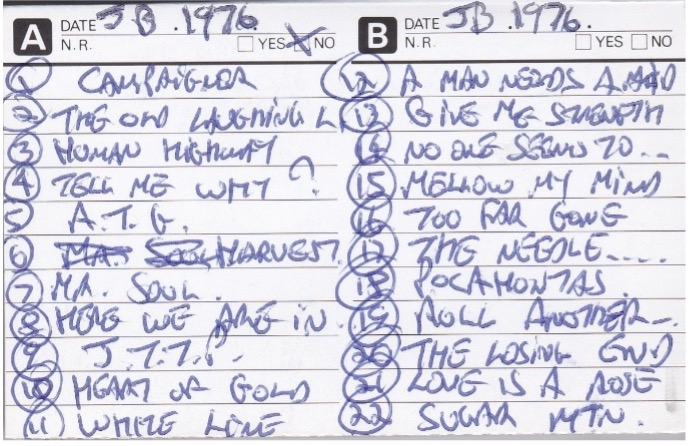 A DATE JB. 1976.
N.R. YES NO
① CAMPAIGNER
② THE OLD LAUGHING L
③ HUMAN HIGHWAY
④ TELL ME WHY ?
⑤ A.T.G.
⑥ MR. SOUL HARVEST
⑦ MR. SOUL.
⑧ HERE WE ARE IN.
⑨ J.T.T.P.
⑩ HEART OF GOLD
⑪ WHITE LINE
B DATE JB 1976.
N.R. YES NO
⑫ A MAN NEEDS A MAID
⑬ GIVE ME STRENGTH
⑭ NO ONE SEEMS TO...
⑮ MELLOW MY MIND
⑯ TOO FAR GONE
⑰ THE NEEDLE....
⑱ POCAHONTAS.
⑲ ROLL ANOTHER...
⑳ THE LOSING END
㉑ LOVE IS A ROSE
㉒ SUGAR MTN.